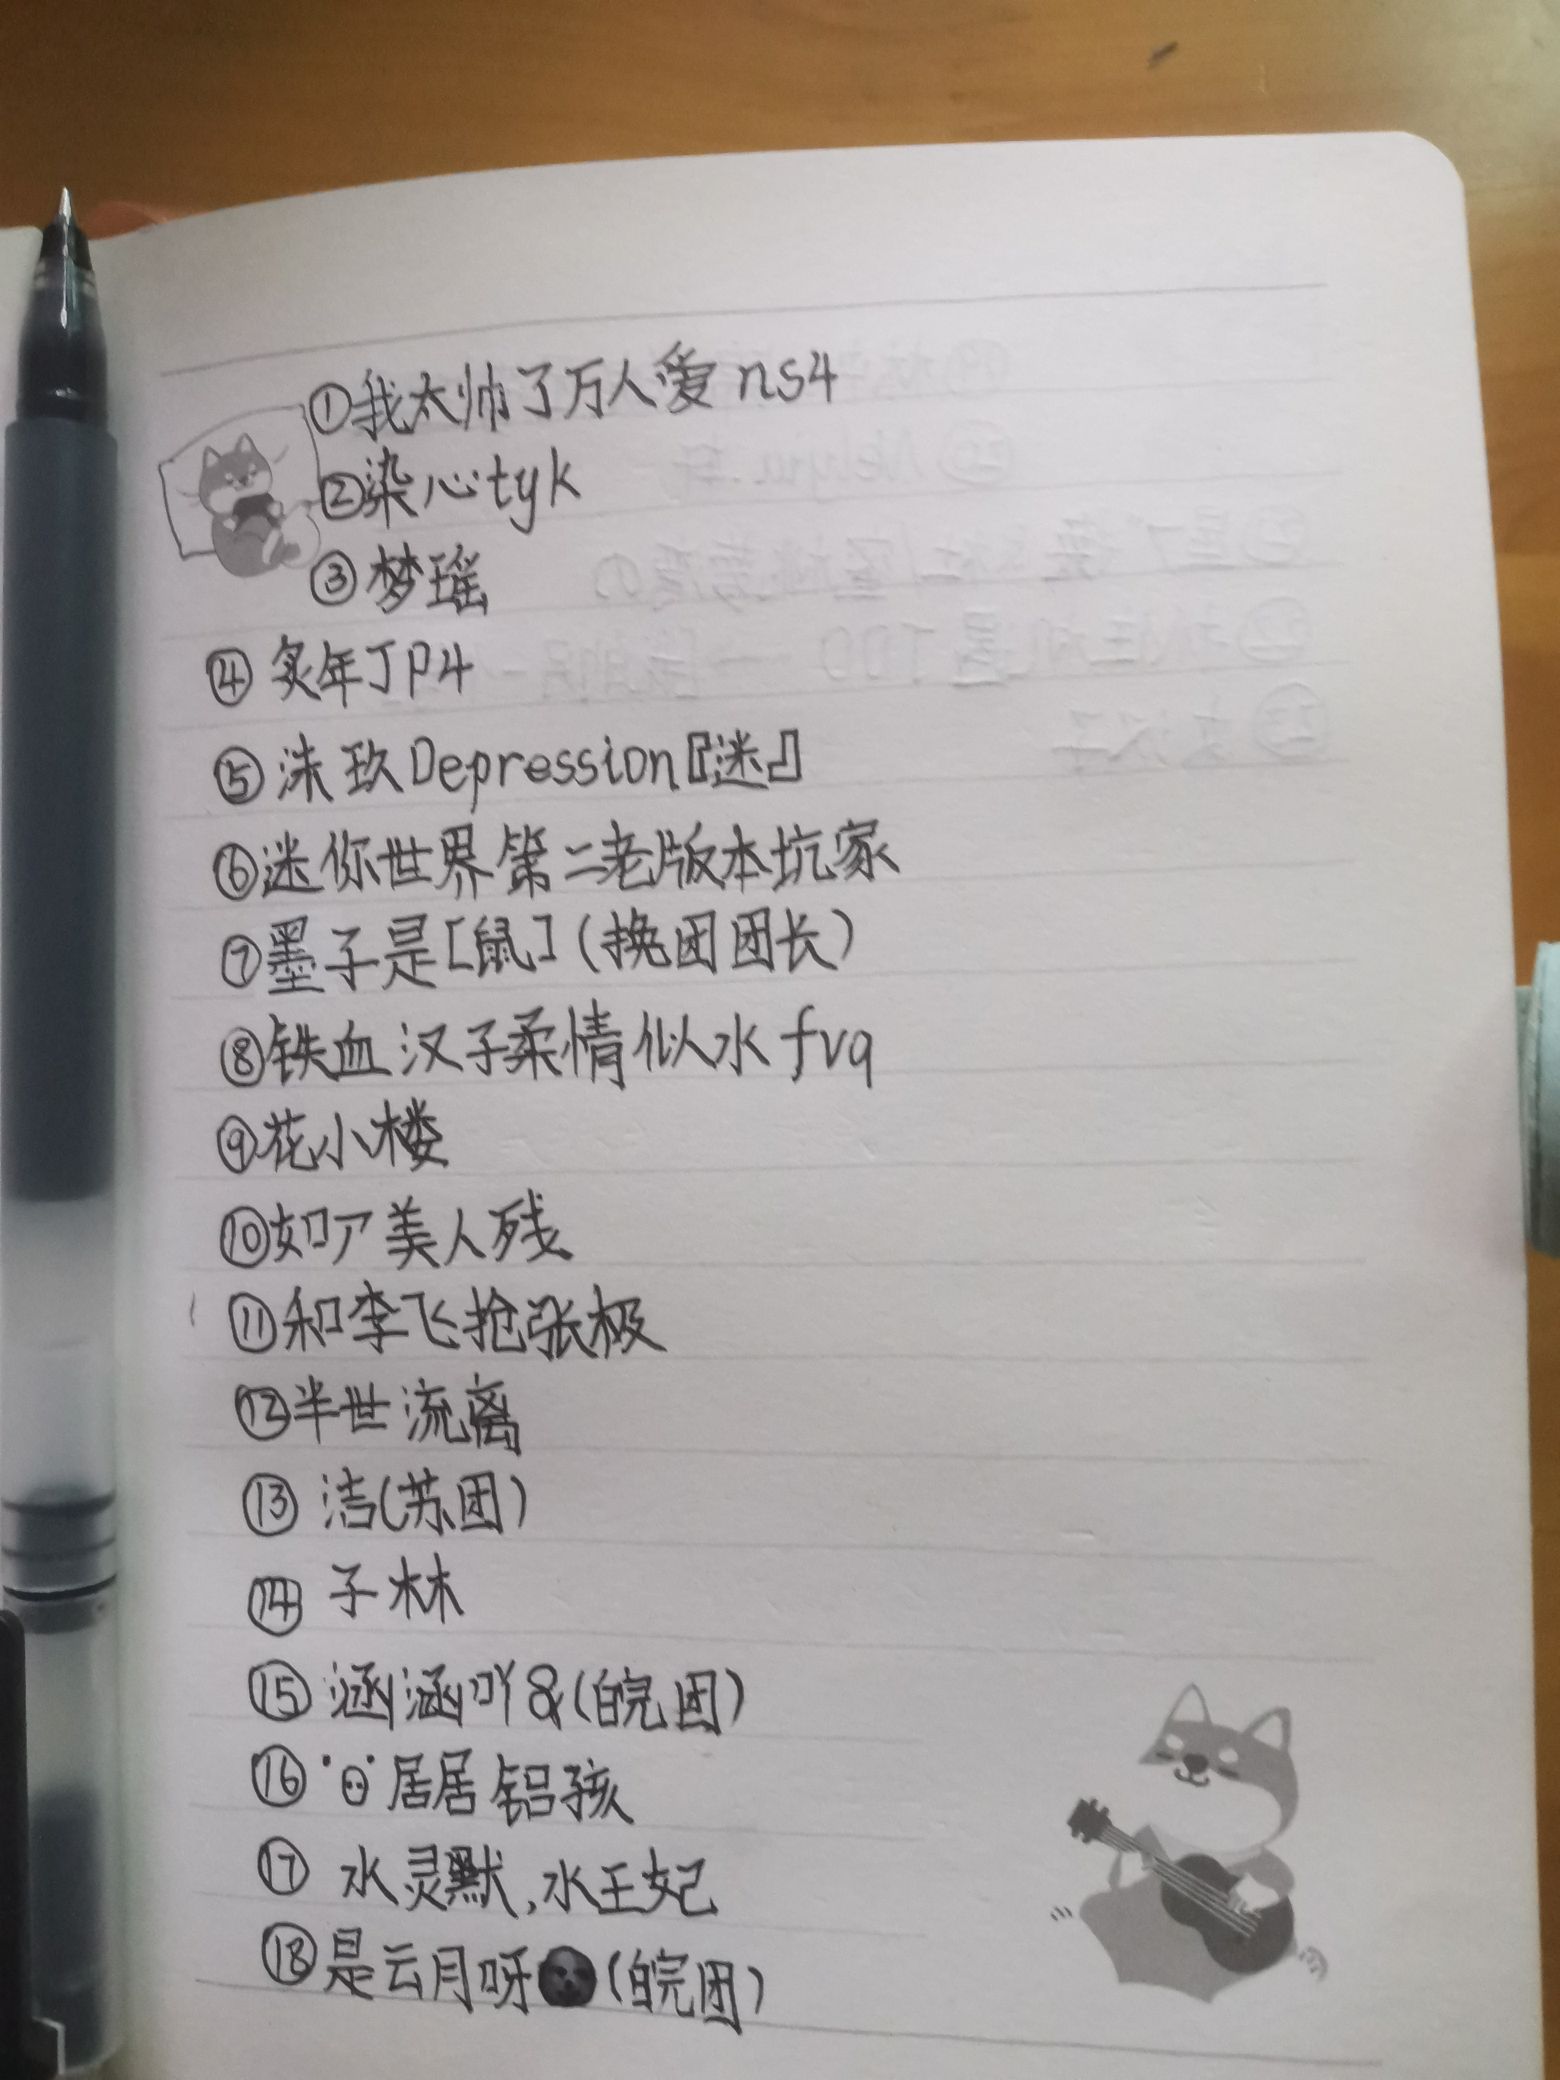 ①我太帅了万人爱ns4
②染心tyk
③梦瑶
④炙年JP4
⑤沫玖Depression『迷』
⑥迷你世界第二老版本坑家
⑦墨子是[鼠](挽团团长)
⑧铁血汉子柔情似水fvq
⑨花小楼
⑩如ア美人残
⑪和李飞抢张极
⑫半世流离
⑬洁(苏团)
⑭子林
⑮涵涵吖&(皖团)
⑯居居铝孩
⑰水灵默,水王妃
⑱是云月呀(皖团)